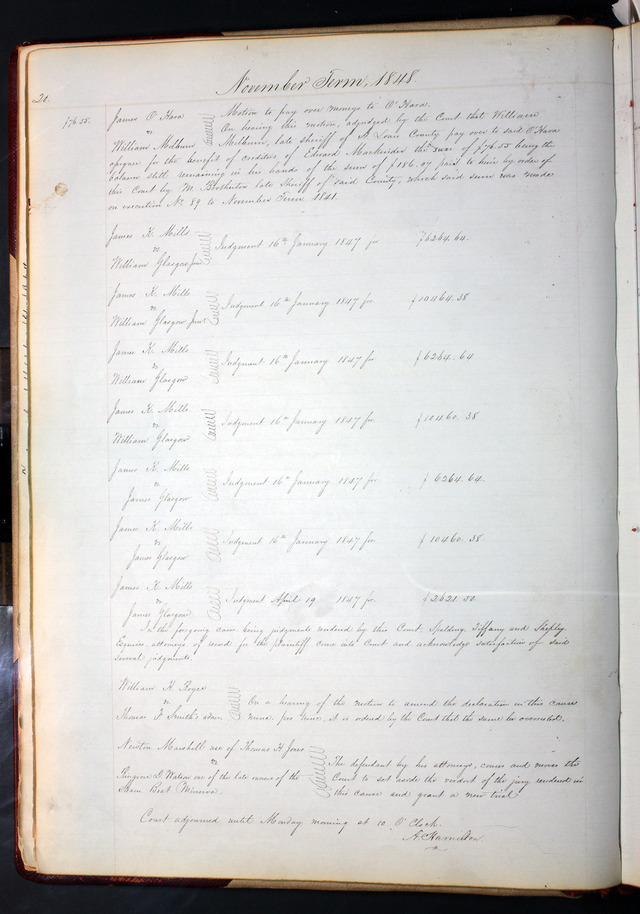 20.
November Term, 1848.
$76.55.
James O'Hara
vs
William Milburn
Motion to pay over moneys to O'Hara.
On hearing this motion, adjudged by the Court that William
Milburn, late sheriff of St Louis County pay over to said O'Hara
assignee for the benefit of creditors of Edward the sum of $76.55 being the
balance still remaining in his hands of the sum of $186.07 paid to him by order of
this Court by M. Brotherton late Sheriff of said County, which said sum was made
on execution No 89 to November Term 1841.
James K. Mills
vs
William Glasgow Jun
Judgment 16th January 1847 for $6264.64.
James K. Mills
vs
William Glasgow Junr
Judgment 16th January 1847 for $10464.38
James K. Mills
vs
William Glasgow
Judgment 16th January 1847 for $6264.64
James K. Mills
vs
William Glasgow
Judgment 16th January 1847 for $10460.38
James K. Mills
vs
James Glasgow
Judgment 16th January 1847 for $6264.64.
James K. Mills
vs
James Glasgow
Judgment 16th January 1847 for $10460.38
James K. Mills
vs
James Glasgow
Judgment April 19 1847 for $2621.50
In the forgoing cases being judgments rendered by this Court, Spalding, Tiffany and Shepley
Esquires attorneys of record for the plaintiff come into Court and acknowledge satisfaction of said
several judgments.
William H. Royce
vs
Thomas F. Smith's admr
On a hearing of the motion to amend the declaration in this cause
nunc pro tunc, it is ordered by the Court that the same be overruled.
Newton Marshall use of Thomas H Jones
vs
D. Watson one of the late owners of the
Steam Boat Minerva.
The defendant by his attorneys, comes and moves the
Court to set aside the verdict of the jury rendered in
this cause and grant a new trial
Court adjourned until Monday morning at 10 O'Clock.
A. Hamilton